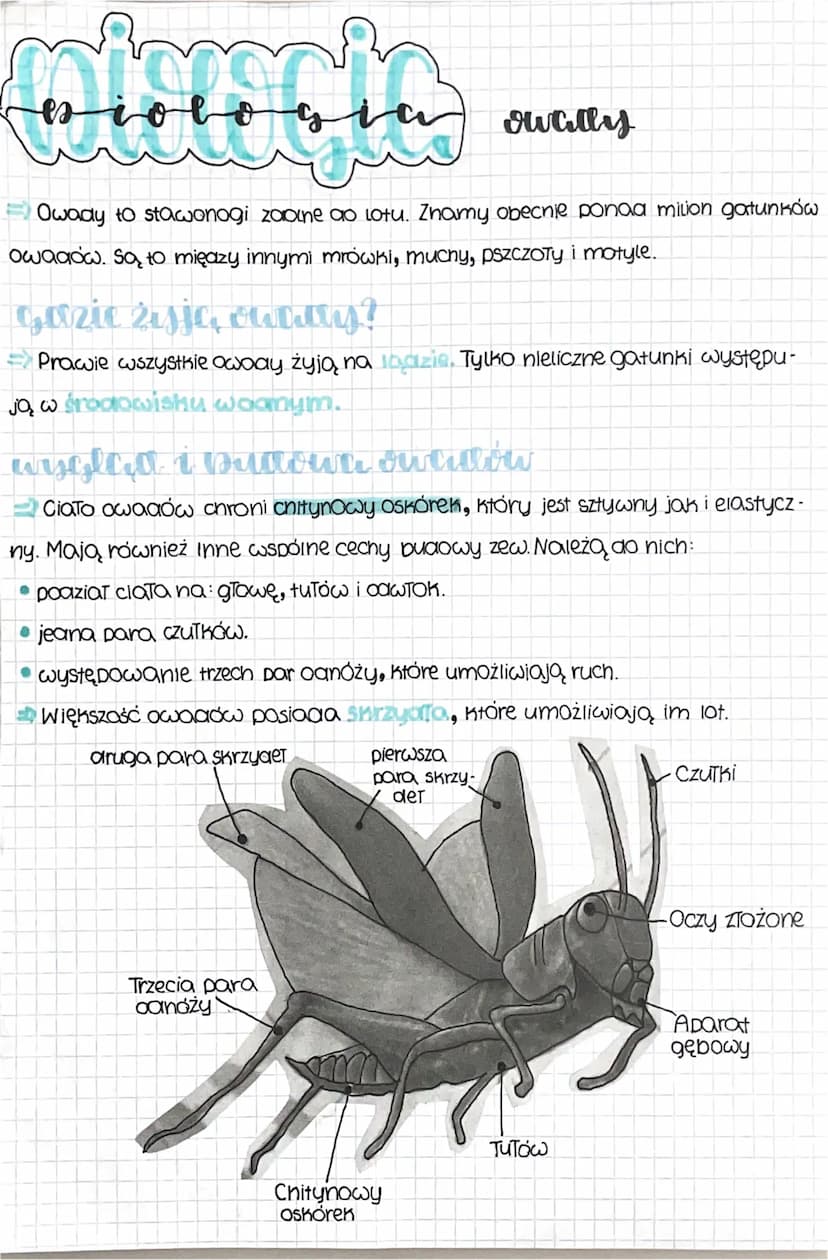 biologia
biologia owady
⇒ Owady to stawonogi zdolne do lotu. Znamy obecnie ponad milion gatunków
owadów. Są to między innymi mrówki, muchy, pszczoły i motyle.
gdzie żyją owady?
⇒ Prawie wszystkie owady żyją na lądzie. Tylko nieliczne gatunki występu-
ją w środowisku wodnym.
wygląd i budowa owadów
⇒ Ciało owadów chroni chitynowy oskórek, który jest sztywny jak i elastycz-
ny. Mają również inne wspólne cechy budowy zew. Należą do nich:
• podział ciała na: głowę, tułów i odwłok.
• jedna para czułków.
• występowanie trzech par odnóży, które umożliwiają ruch.
⇒ Większość owadów posiada skrzydła, które umożliwiają im lot.
druga para skrzydeł
pierwsza
para skrzy-
deł
Czułki
Oczy złożone
Trzecia para
odnóży
Aparat
gębowy
Tułów
Chitynowy
oskórek